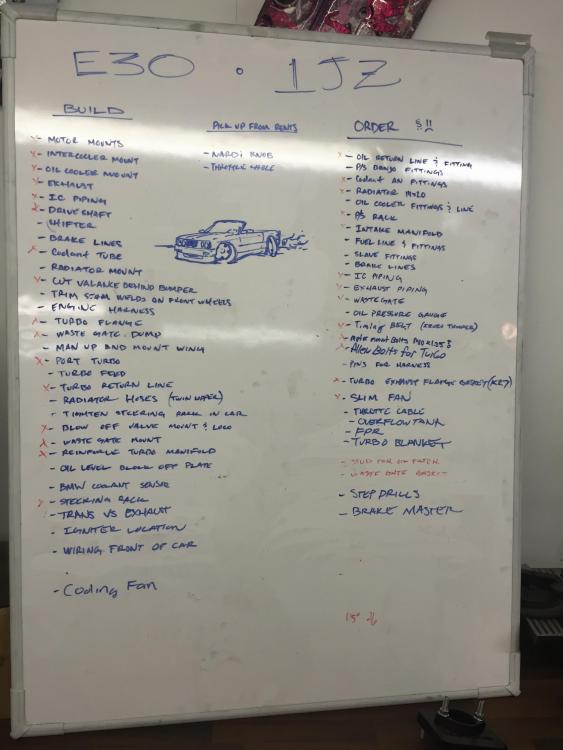 E30 · 1JZ
BUILD
x - MOTOR MOUNTS
x - INTERCOOLER MOUNT
x - OIL COOLER MOUNT
x - EXHAUST
x - IC PIPING
x - DRIVESHAFT
- SHIFTER
- BRAKE LINES
x - Coolant TUBE
- RADIATOR MOUNT
x - CUT VALANCE BEHIND BUMPER
- TRIM SEAM WELDS ON FRONT WHEELS
- ENGINE HARNESS
x - TURBO FLANGE
x - WASTE GATE DUMP
- MAN UP AND MOUNT WING
x - PORT TURBO
- TURBO FEED
x - TURBO RETURN LINE
- RADIATOR HOSES
- TIGHTEN STEERING RACK IN CAR
x - BLOW OFF VALVE MOUNT & LOCO
x - WASTE GATE MOUNT
x - REINFORCE TURBO MANIFOLD
- OIL LEVEL BLOCK OFF PLATE
- BMW COOLANT SENSOR
x - STEERING RACK
- TRANS VS EXHAUST
- IGNITER LOCATION
- WIRING FRONT OF CAR
- Coding Fan
PICK UP FROM
- NARDI KNOB
- THROTTLE CABLE
ORDER !!!
x - OIL RETURN LINE & FITTING
- P/S BANJO FITTINGS
x - Coolant AN FITTINGS
x - RADIATOR 19x20
- OIL COOLER FITTINGS & LINE
- P/S RACK
x - INTAKE MANIFOLD
- FUEL LINE & FITTINGS
- SLAVE FITTINGS
- BRAKE LINES
x - IC PIPING
x - EXHAUST PIPING
x - WASTEGATE
- OIL PRESSURE GAUGE
x - Timing BELT
x - Allen Bolts for Turbo
- PINS FOR HARNESS
x - TURBO EXHAUST FLANGE GASKET
x - SLIM FAN
- THROTTLE CABLE
- OVERFLOW TANK
- FPR
- TURBO BLANKET
- STUD FOR OIL
- WASTE GATE GASKET
- STEP DRILLS
- BRAKE MASTER